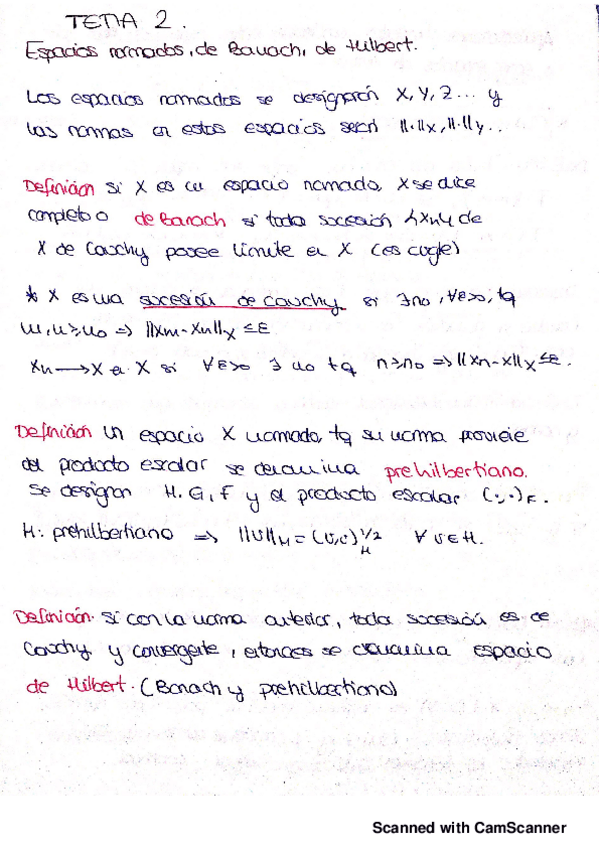 TEMA 2.
Espacios normados, de Banach, de Hilbert.
Los espacios normados se designarán X, Y, Z ... y
las normas en estos espacios serán ||·||x, ||·||y..
Definición si X es un espacio normado, X se dice
completo o de Banach si toda sucesión {xn} de
X de Cauchy posee límite en X (es cogle)
* X es una sucesión de cauchy si ∃n0, ∀ε>0, tq
m,n≥n0 => ||xm - xn||x ≤ε
xn → x en X si ∀ε>0 ∃ n0 tq n≥n0 => ||xn - x||x ≤ε.
Definición Un espacio X normado, tq su norma proviene
del producto escalar se denomina prehilbertiano.
Se designan H, G, F y el producto escalar (·,·)F.
H: prehilbertiano => ||v||H = (v,v)H^1/2 ∀ v∈H.
Definición. Si con la norma anterior, toda sucesión es de
Cauchy y convergente, entonces se denomina espacio
de Hilbert. (Banach y prehilbertiano)
Scanned with CamScanner